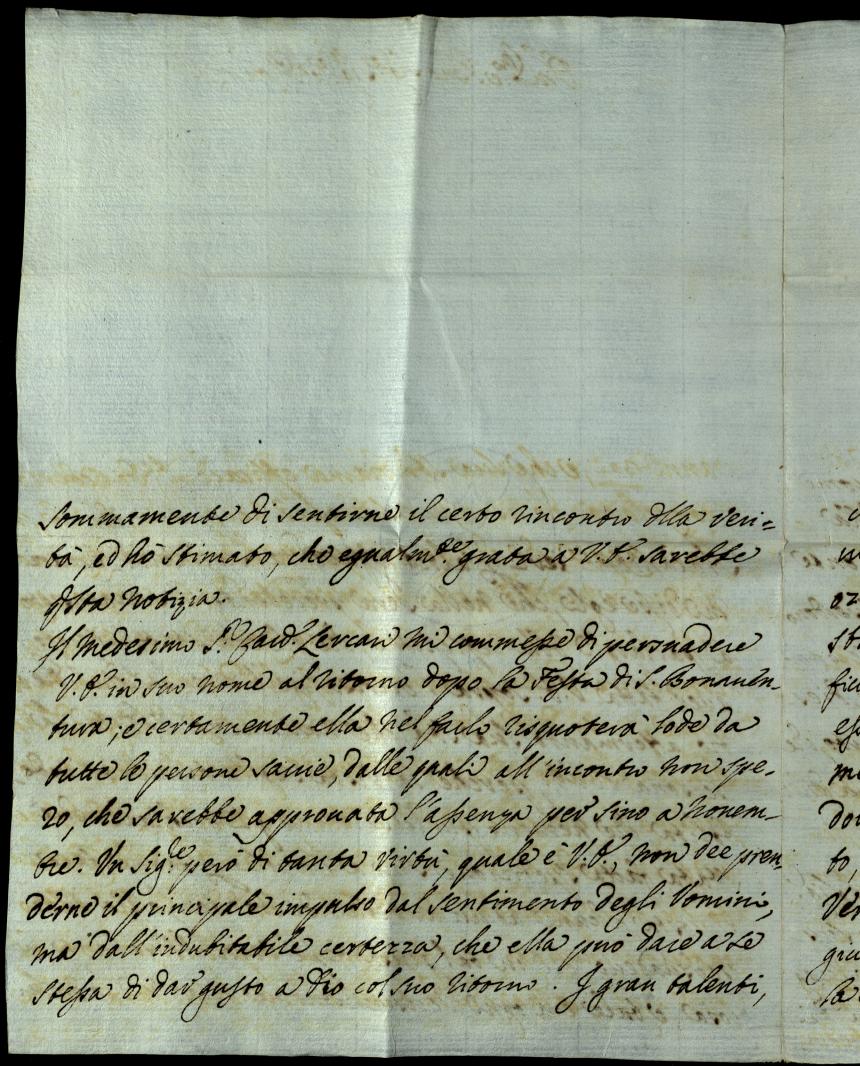 sommamente di sentirne il certo rincontro dlla veri=
tà, ed hò stimato, che egualm.te grata à V.S. sarebbe
qsta notizia.
Il medesimo S.r Card. Lercari mi commesse di persuadere
V.S. in suo nome al ritorno dopo la Festa di S. Bonaven-
tura; e certamente ella nel farlo risquoterà lode da
tutte le persone savie, dalle quali all'incontro non spe-
ro, che sarebbe approvata l'assenza per sino a Novem-
bre. Un Sig.re però di tanta virtù, quale è V.S., non dee pren-
derne il principale impulso dal sentimento degli Uomini,
mà dall'indubitabile certezza, che ella può dare a se
stessa di dar gusto a Dio col suo ritorno. I gran talenti,